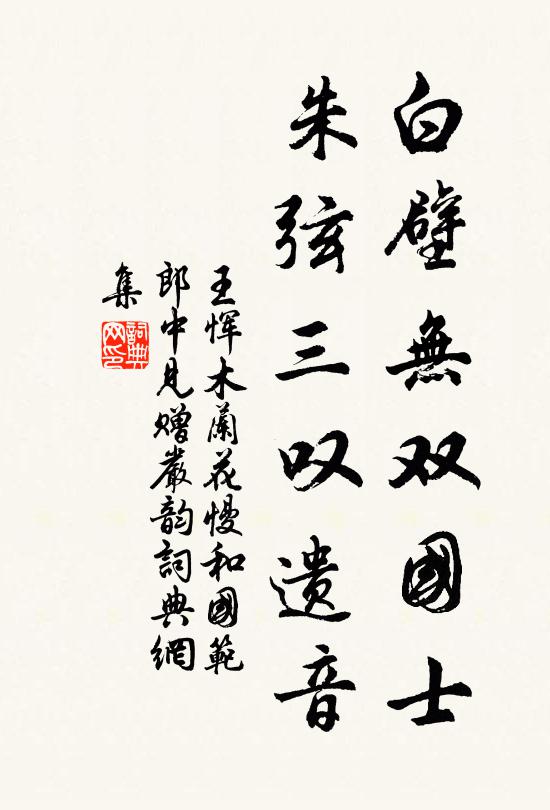 白璧無双國士
朱弦三叹遗音
王恽木蘭花慢和國範
郎中見赠嚴韵詞典網
集
詞典网印